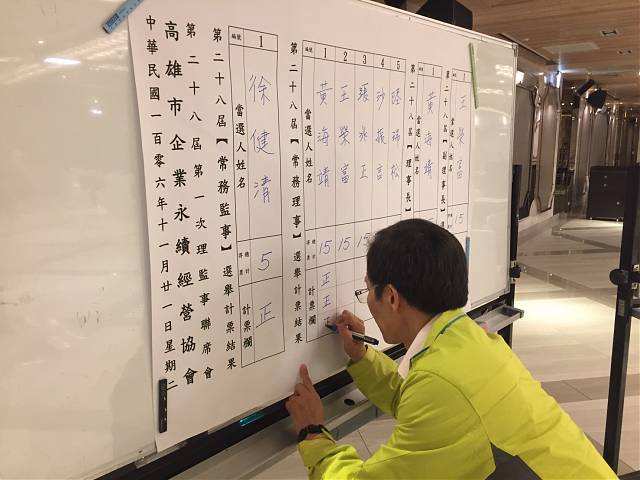 中華民國一百零六年十一月廿一日星期二
高雄市企業永續經營協會
第二十八屆第一次理監事聯席會
第二十八屆【常務監事】選舉計票結果
編號 當選人姓名 總計票 計票欄
1 徐健清 5 正
第二十八屆【常務理事】選舉計票結果
編號 當選人姓名 總計票 計票欄
1 黃海靖 15 正正
2 王榮富 15
3 張水正 15
4
5
第二十八屆【理事長】
編號 當選人姓名
1 黃海靖
第二十八屆【副理事長】
當選人姓名
1 王榮富 15